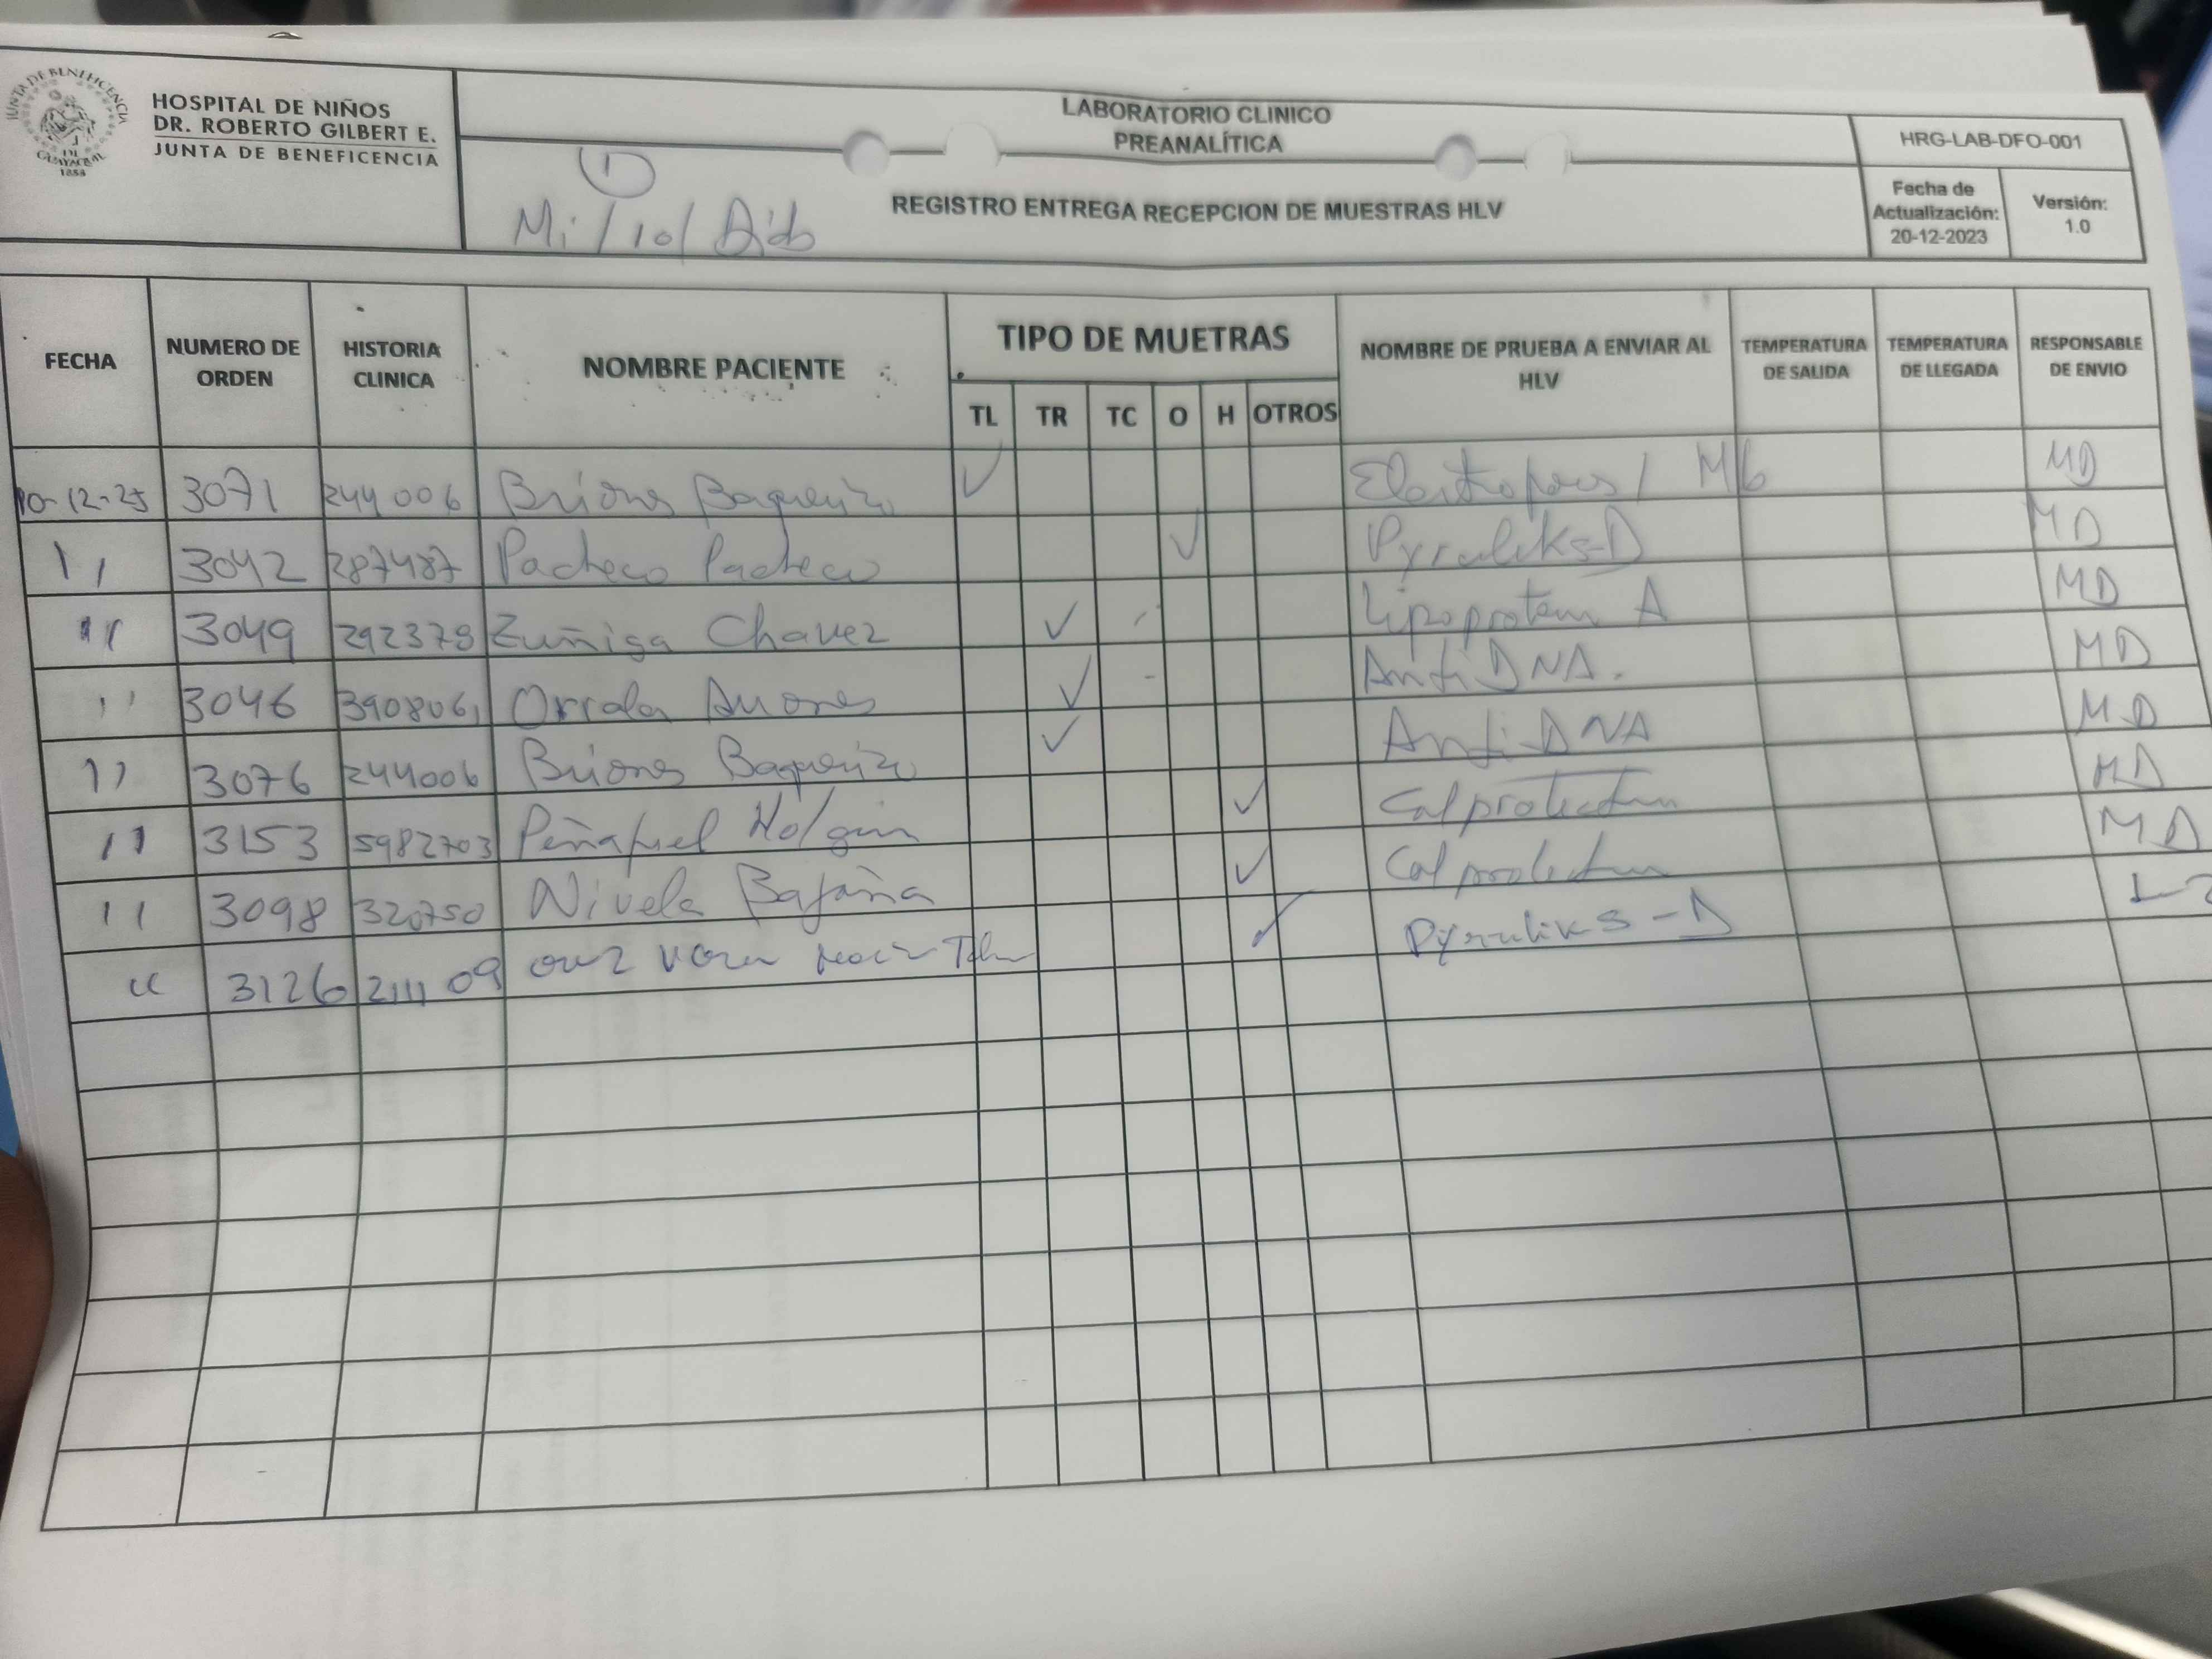 JUNTA DE BENEFICENCIA DE GUAYAQUIL 1888
HOSPITAL DE NIÑOS
DR. ROBERTO GILBERT E.
JUNTA DE BENEFICENCIA
LABORATORIO CLINICO
PREANALÍTICA
HRG-LAB-DFO-001
1
Mi / 10/
REGISTRO ENTREGA RECEPCION DE MUESTRAS HLV
Fecha de Actualización: 20-12-2023
Versión: 1.0
FECHA NUMERO DE ORDEN HISTORIA CLINICA NOMBRE PACIENTE TIPO DE MUETRAS NOMBRE DE PRUEBA A ENVIAR AL HLV TEMPERATURA DE SALIDA TEMPERATURA DE LLEGADA RESPONSABLE DE ENVIO
TL TR TC O H OTROS
10-12-25 3071 244006 Briones Baquerizo ✓ / MD
11 3042 287487 Pacheco Pacheco ✓ Pyruliks-D MD
11 3049 292379 Zuñiga Chavez ✓ Lipoprotein A MD
11 3046 3908061 Orrala ✓ Anti DNA. MD
11 3076 244006 Briones Baquerizo ✓ Anti-DNA MD
11 3153 5982703 Peñafiel Holguin ✓ Calprotectin MD
11 3098 320750 Nivela Bajaña ✓ Calprotectin MD
" 3126 211109 ✓ Pyruliks-D